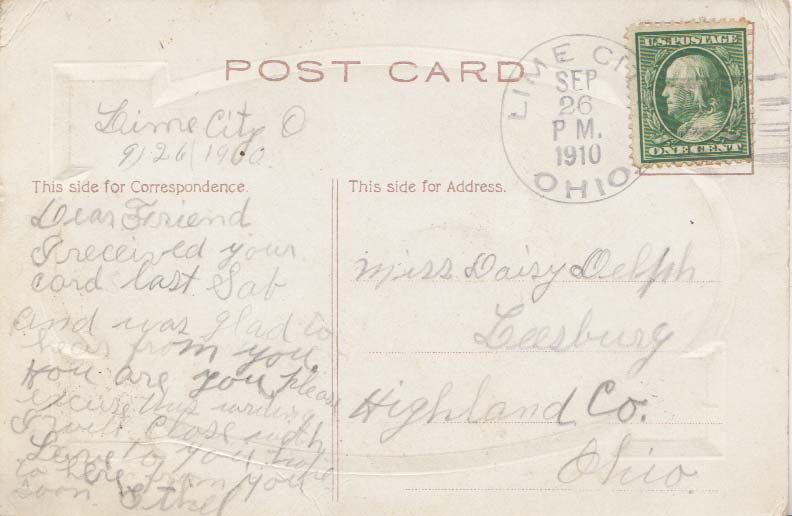 POST CARD
LIME CI
SEP
26
P M.
1910
OHIO
U.S. POSTAGE
ONE CENT
Lime City O
9/26/1910.
This side for Correspondence.
Dear Friend
I received your
card last Sat
and was glad to
hear from you.
How are you please
excuse this writing
I will close with
Love to you hope
to hear from you
soon. Ethel
This side for Address.
Miss Daisy Delph
Leesburg
Highland Co.
Ohio.